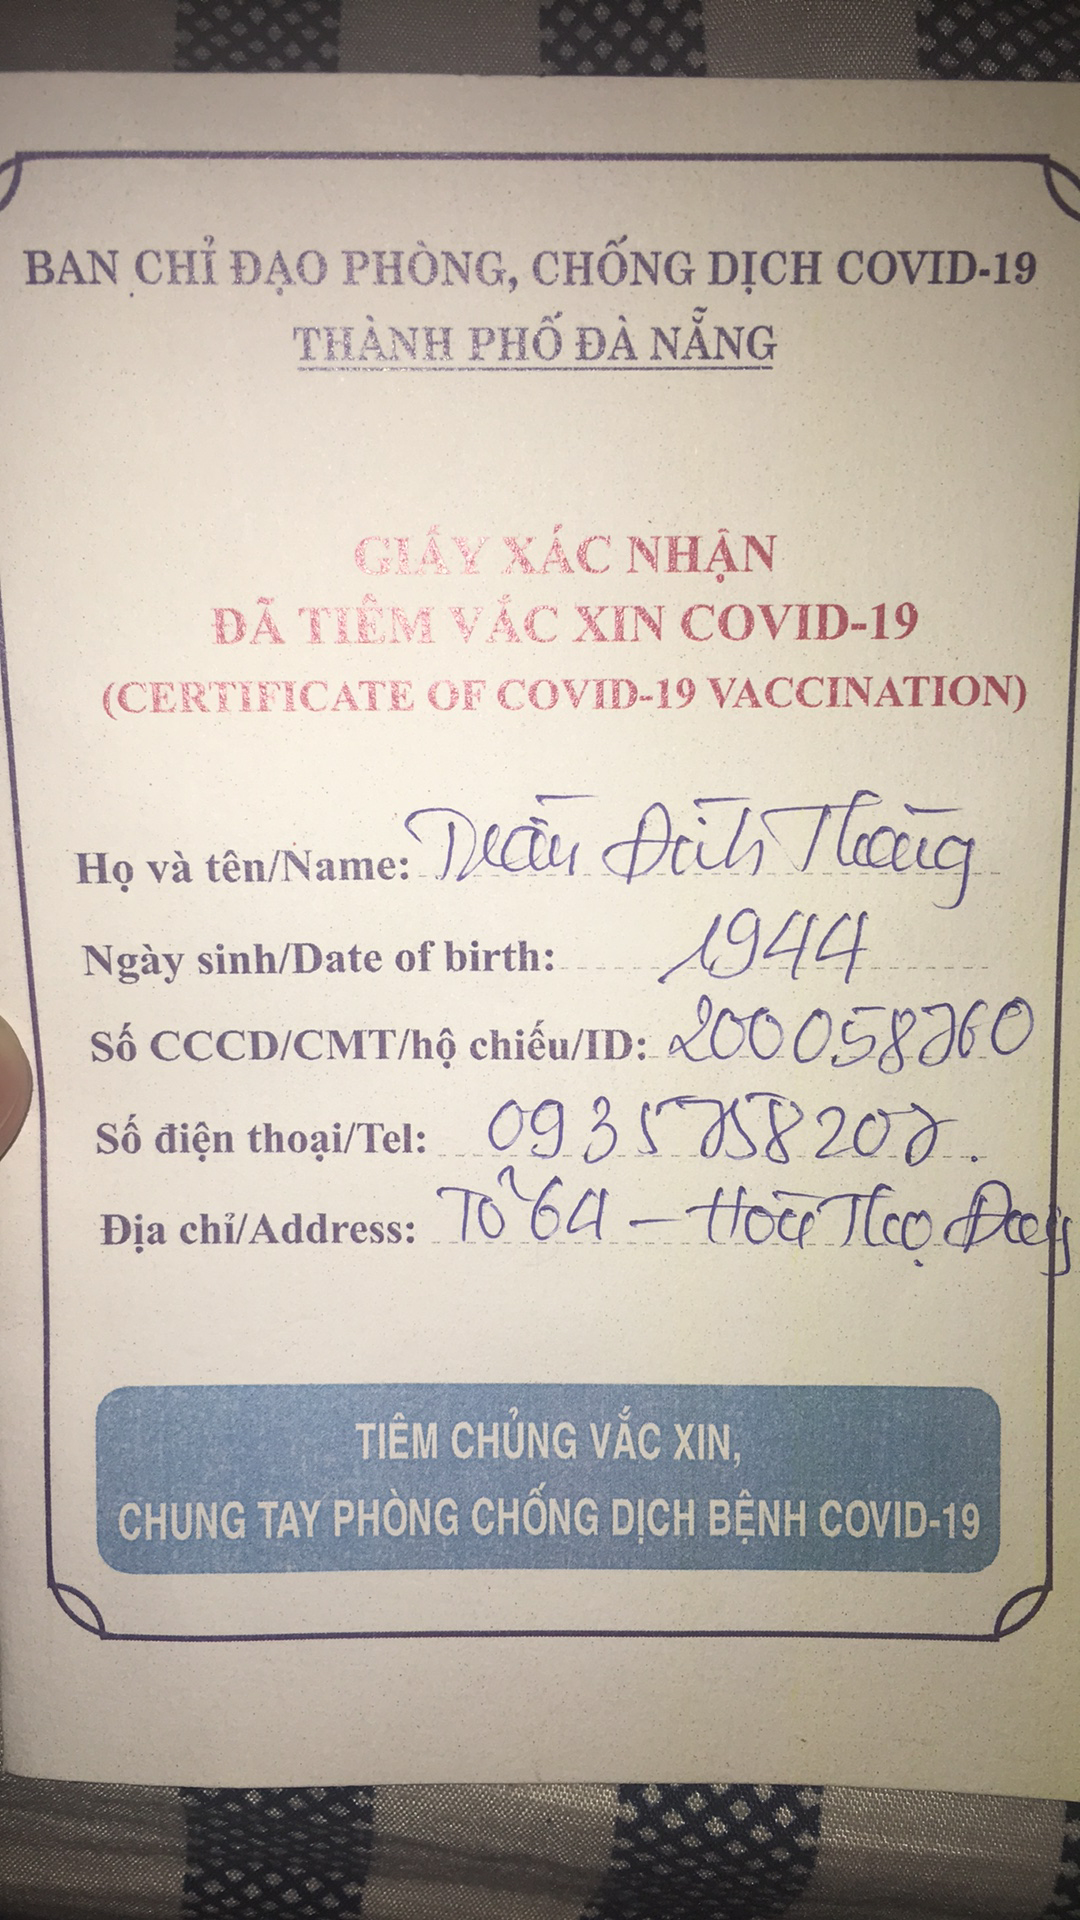 BAN CHỈ ĐẠO PHÒNG, CHỐNG DỊCH COVID-19
THÀNH PHỐ ĐÀ NẴNG
GIẤY XÁC NHẬN
ĐÃ TIÊM VẮC XIN COVID-19
(CERTIFICATE OF COVID-19 VACCINATION)
Họ và tên/Name: Trần Đình
Ngày sinh/Date of birth: 1944
Số CCCD/CMT/hộ chiếu/ID: 200058760
Số điện thoại/Tel: 0935758207.
Địa chỉ/Address: Tổ 64 - Hòa Thọ Đông
TIÊM CHỦNG VẮC XIN,
CHUNG TAY PHÒNG CHỐNG DỊCH BỆNH COVID-19